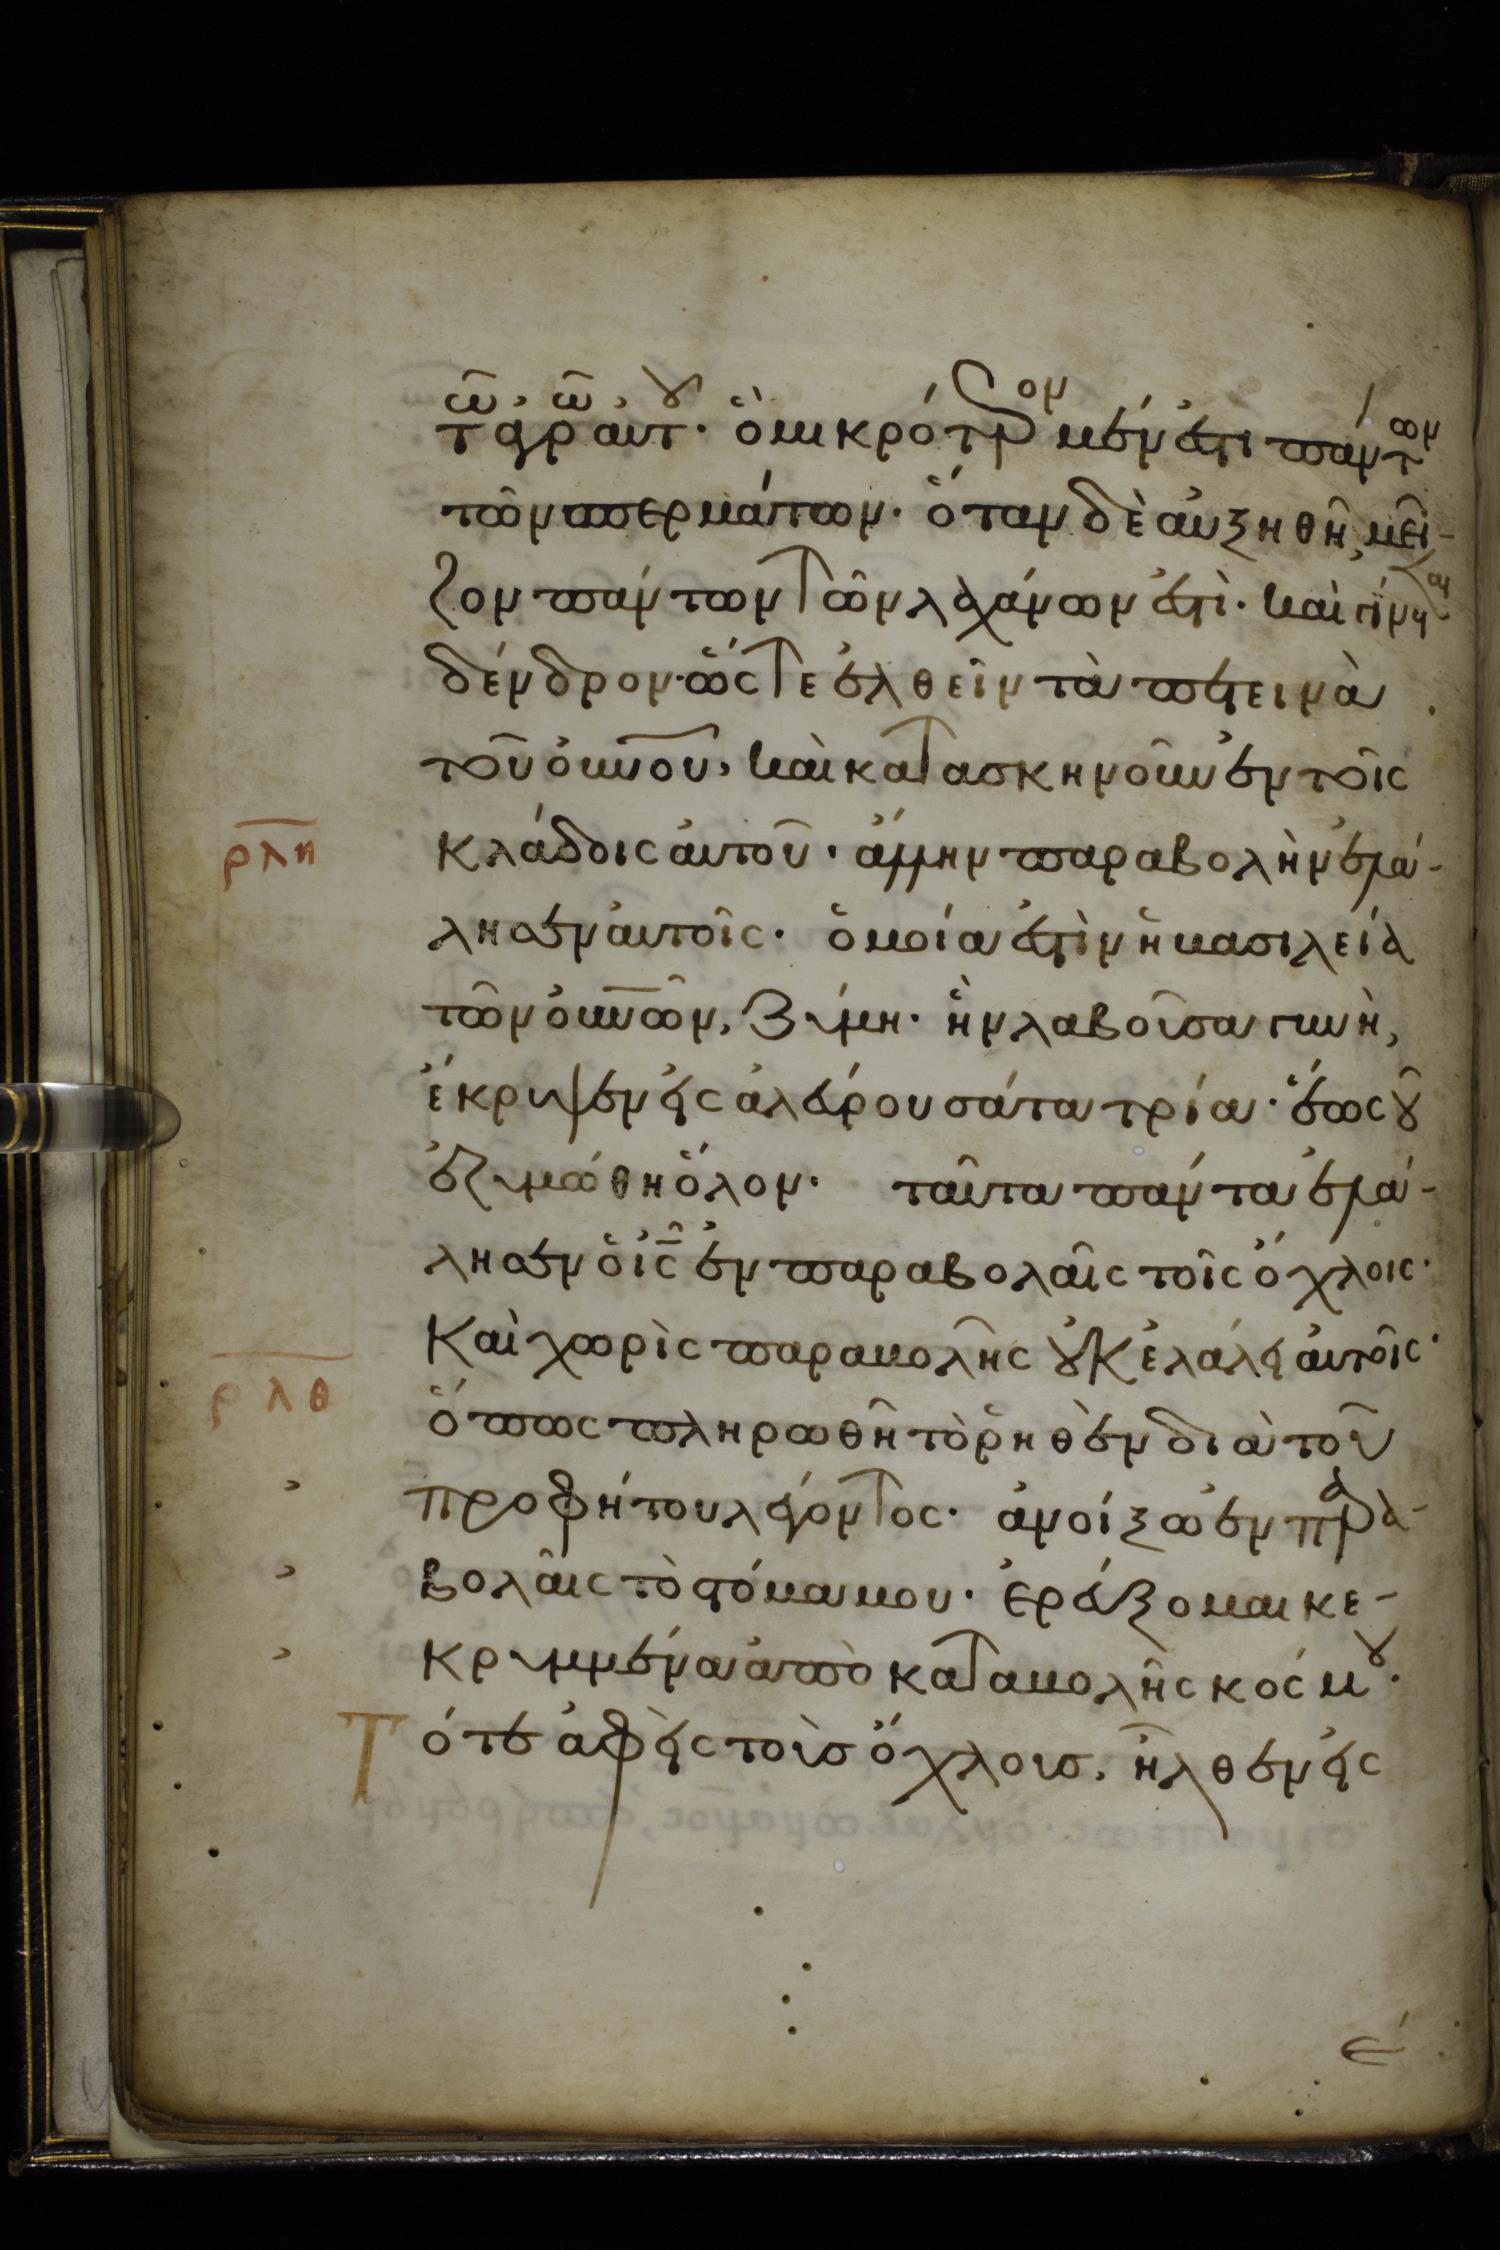 τῶ ἀγρῶ αὐτοῦ· ὃ μικρότερον μέν ἐστι πάντων
τῶν σπερμάτων· ὅταν δὲ αὐξηθῆ, μεῖ-
ζον πάντων τῶν λαχάνων ἐστὶ· καὶ γίνεται
δένδρον· ὥστε ἐλθεῖν τὰ πετεινὰ
τοῦ οὐνοῦ, καὶ κατασκηνοῦν ἐν τοῖς
ρλη κλάδοις αὐτοῦ· ἄλλην παραβολὴν ἐλά-
λησεν αὐτοῖς· ὁμοία ἐστὶν ἡ βασιλεία
τῶν οὐνῶν, ζύμη· ἣν λαβοῦσα γυνὴ,
ἔκρυψεν εἰς ἀλεύρου σάτα τρία· ἕως οὗ
ἐζυμώθη ὅλον· ταῦτα πάντα ἐλά-
λησεν ὁ ις ἐν παραβολαῖς τοῖς ὄχλοις·
Καὶ χωρὶς παραβολῆς οὐκ ἐλάλει αὐτοῖς·
ρλθ ὅπως πληρωθῆ τὸ ῥηθὲν διὰ τοῦ
προφήτου λέγοντος· ἀνοίξω ἐν παρα-
βολαῖς τὸ στόμα μου· ἐρεύξομαι κε-
κρυμμένα ἀπὸ καταβολῆς κόσμου·
Τότε ἀφεὶς τοὺς ὄχλους, ἦλθεν εἰς
ε